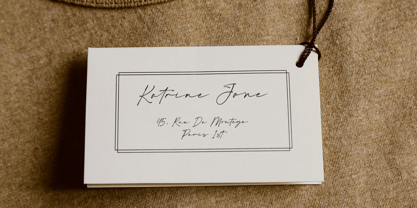 Katrine Jone
45. Rue De Montage
Paris 1st